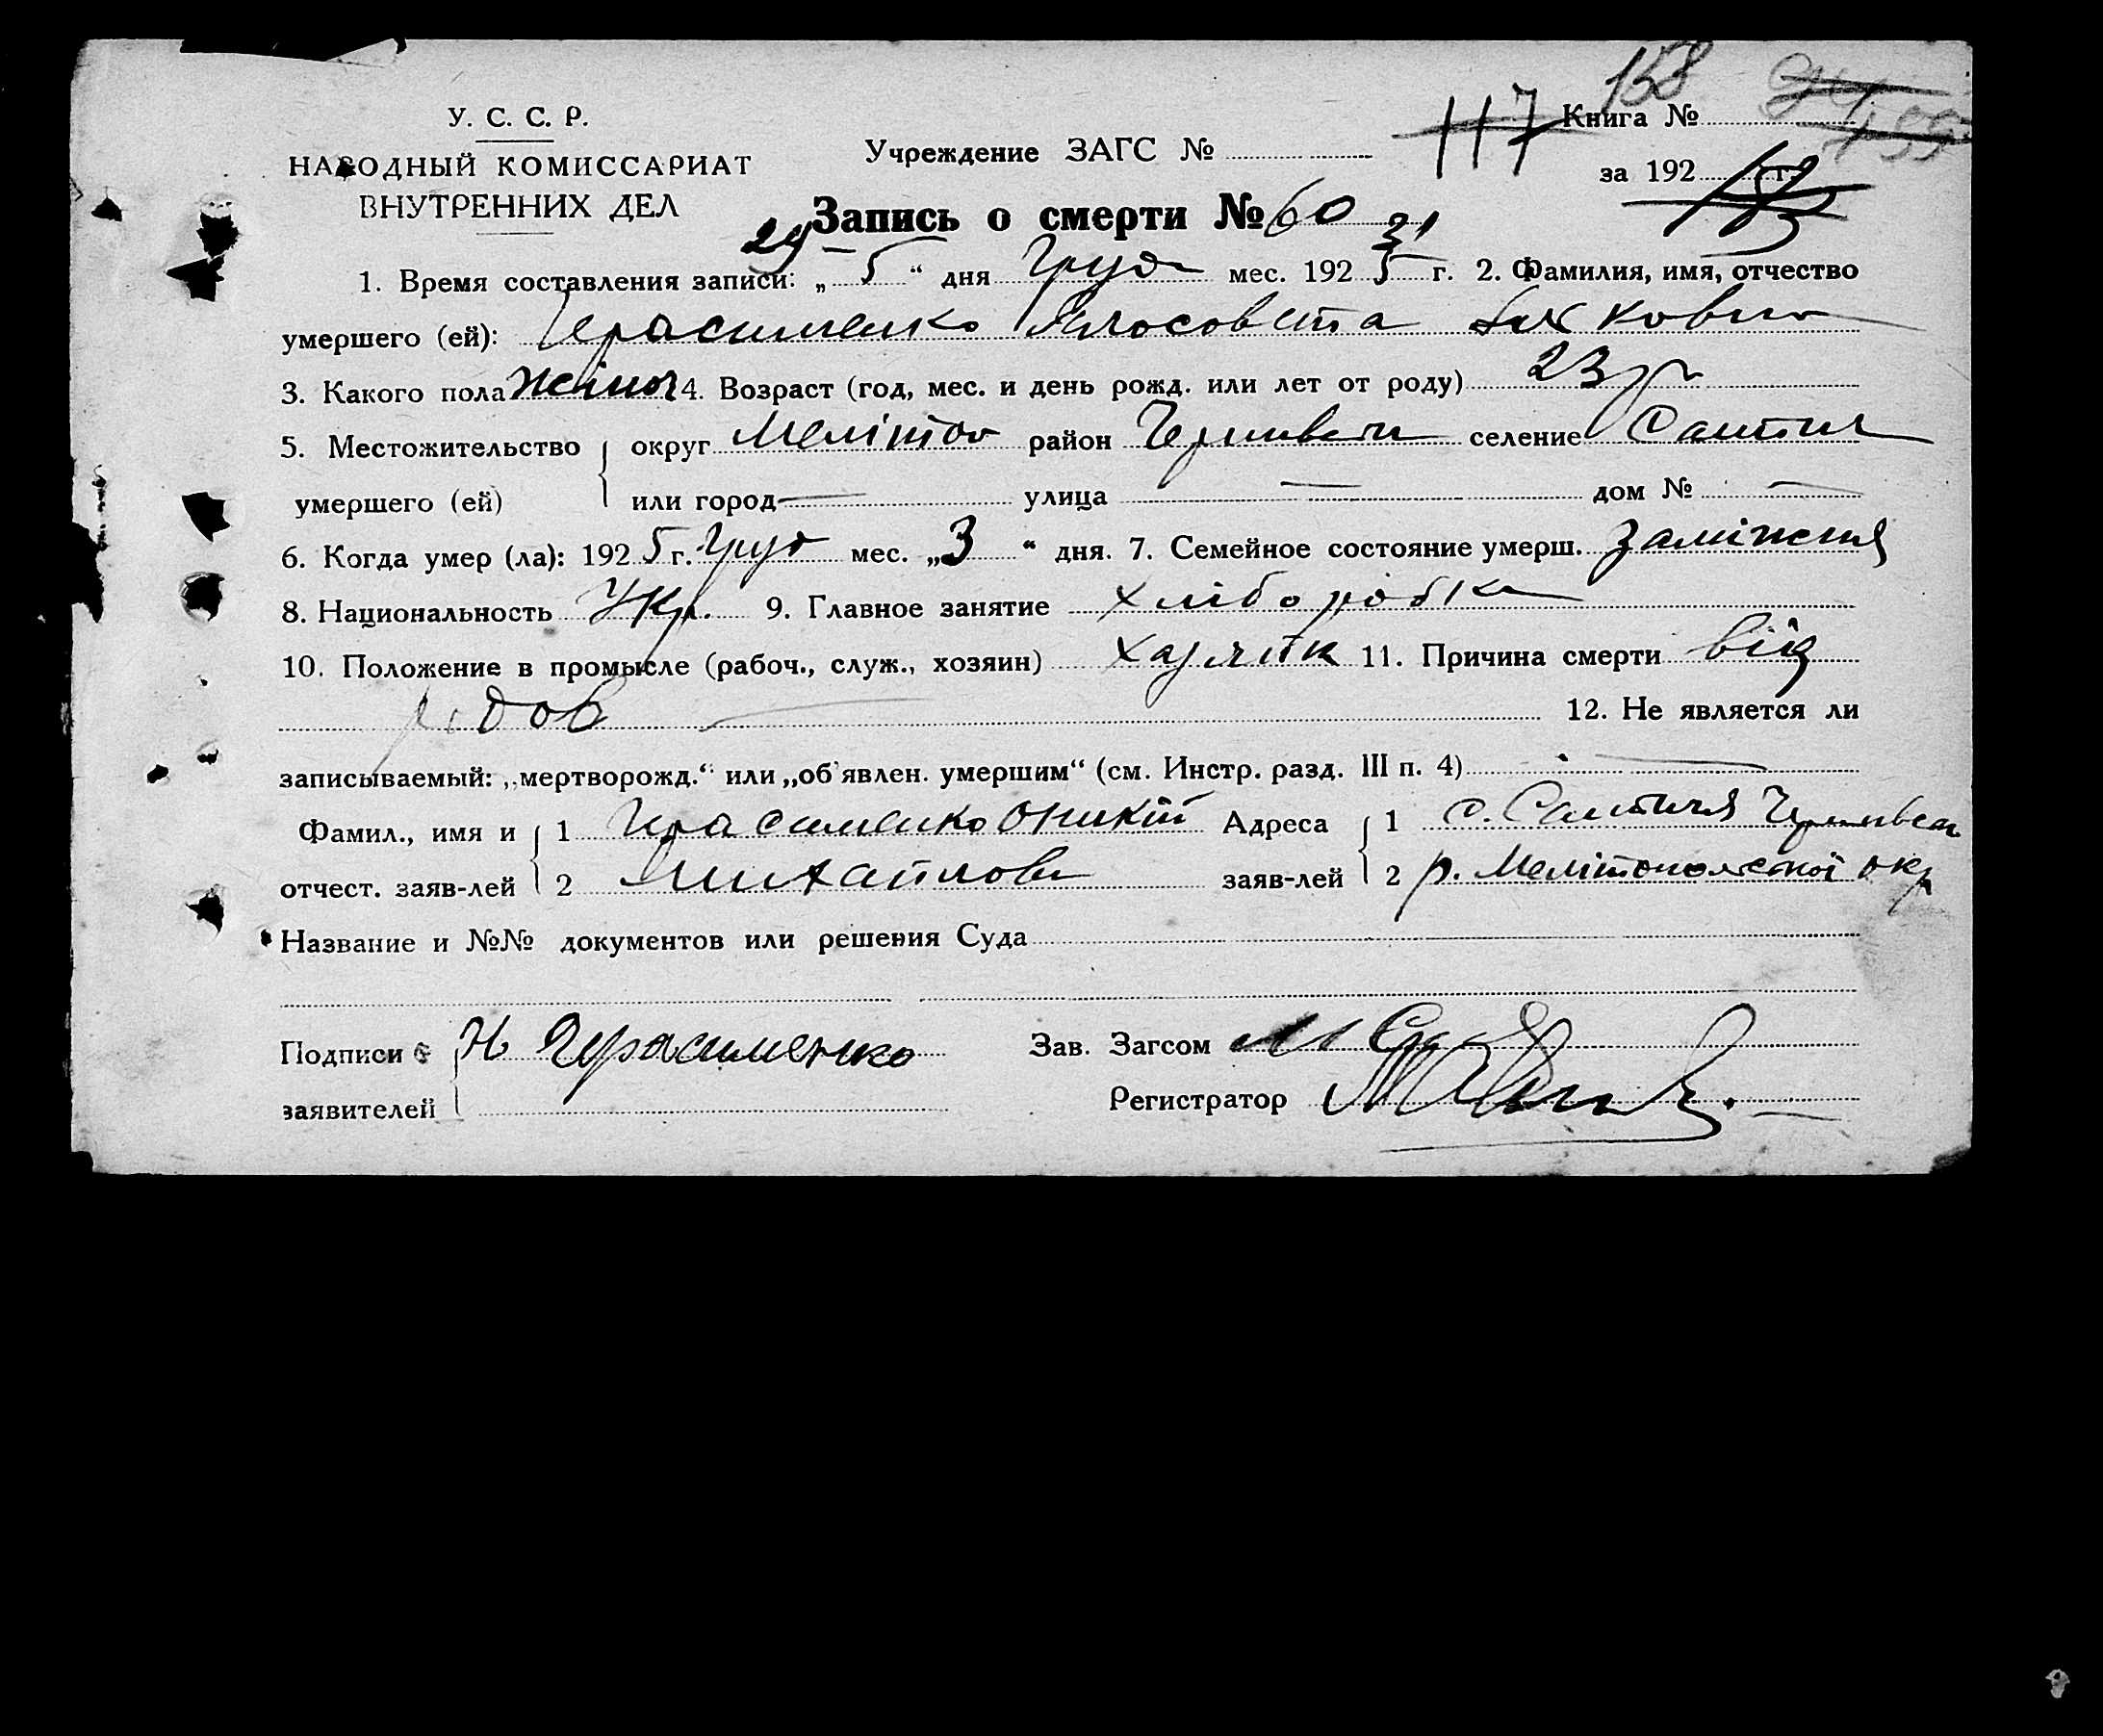 158
У. С. С. Р.
НАРОДНЫЙ КОМИССАРИАТ
ВНУТРЕННИХ ДЕЛ
Учреждение ЗАГС №
117 Книга №
за 192 г.
Запись о смерти № 60
29 31
1. Время составления записи: „ 5 “ дня Груд мес. 192 5 г. 2. Фамилия, имя, отчество
умершего (ей): Герасименко
3. Какого пола жіноч 4. Возраст (год, мес. и день рожд. или лет от роду) 23 р
5. Местожительство округ Меліто район селение
умершего (ей) или город — улица — дом № —
6. Когда умер (ла): 192 5 г. Груд мес. „ 3 “ дня. 7. Семейное состояние умерш. заміжня
8. Национальность Укр. 9. Главное занятие хліборобка
10. Положение в промысле (рабоч., служ., хозяин) 11. Причина смерти від
родов 12. Не является ли
записываемый: „мертворожд.“ или „об'явлен. умершим“ (см. Инстр. разд. III п. 4) —
Фамил., имя и 1 Герасименко Оникій Адреса 1 с.
отчест. заяв-лей 2 Михайлов заяв-лей 2 р. Мелітопольської окр
Название и №№ документов или решения Суда
Подписи Н Герасименко Зав. Загсом
заявителей Регистратор